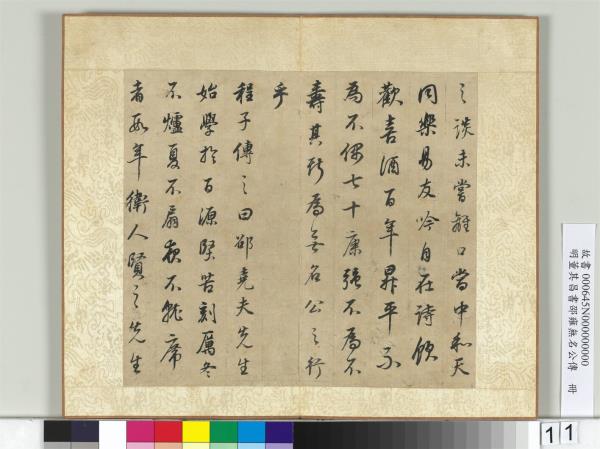 之談未嘗離口當中和天
同樂易友吟自在詩飲
歡喜酒百年昇平不
為不偶七十康強不為不
壽其斯為無名公之行
乎
程子傳之曰邵堯夫先生
始學於百源堅苦刻厲冬
不爐夏不扇夜不就席
者數年衛人賢之先生
故書000645N000000000
明董其昌書邵雍無名公傳 冊
11